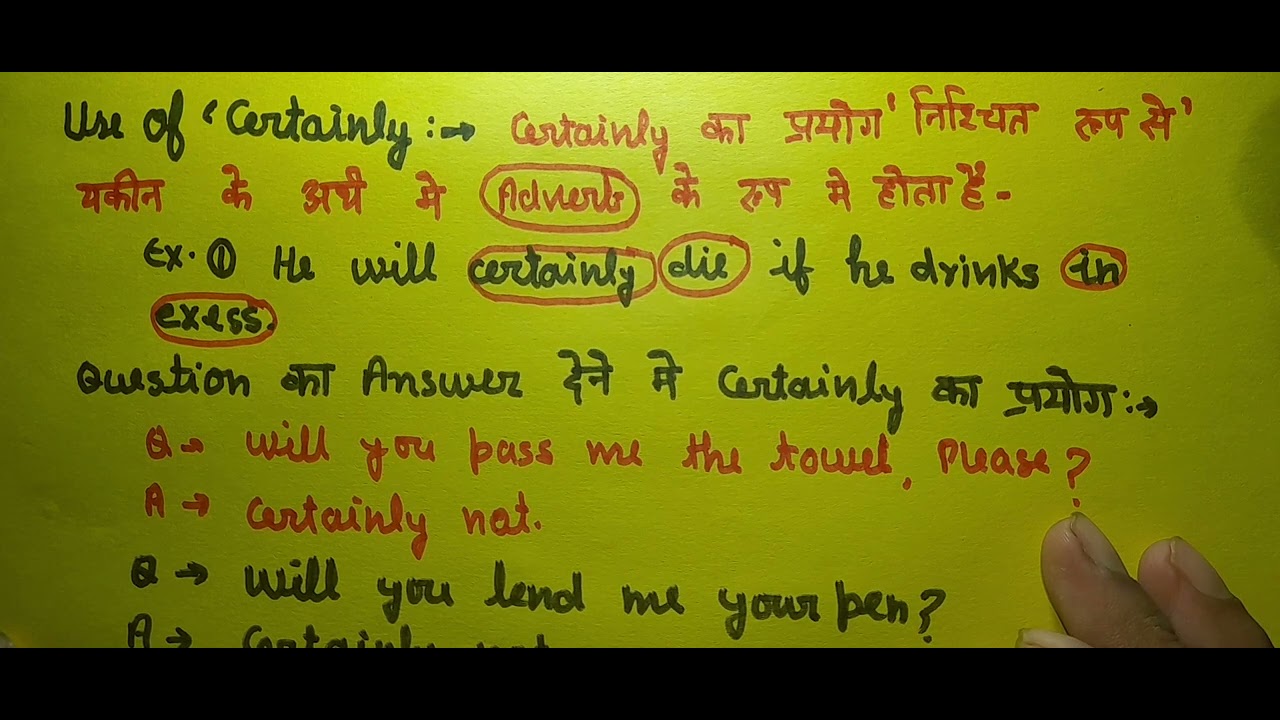 Use of 'Certainly :→ Certainly का प्रयोग 'निश्चित रूप से'
यकीन के अर्थ मे Adverb के रूप मे होता है-
Ex. ① He will certainly die if he drinks in
exess.
Question का Answer देने मे Certainly का प्रयोग :→
Q → Will you pass me the towel, Please?
A → Certainly not.
Q → Will you lend me your pen?
A → Certainly not